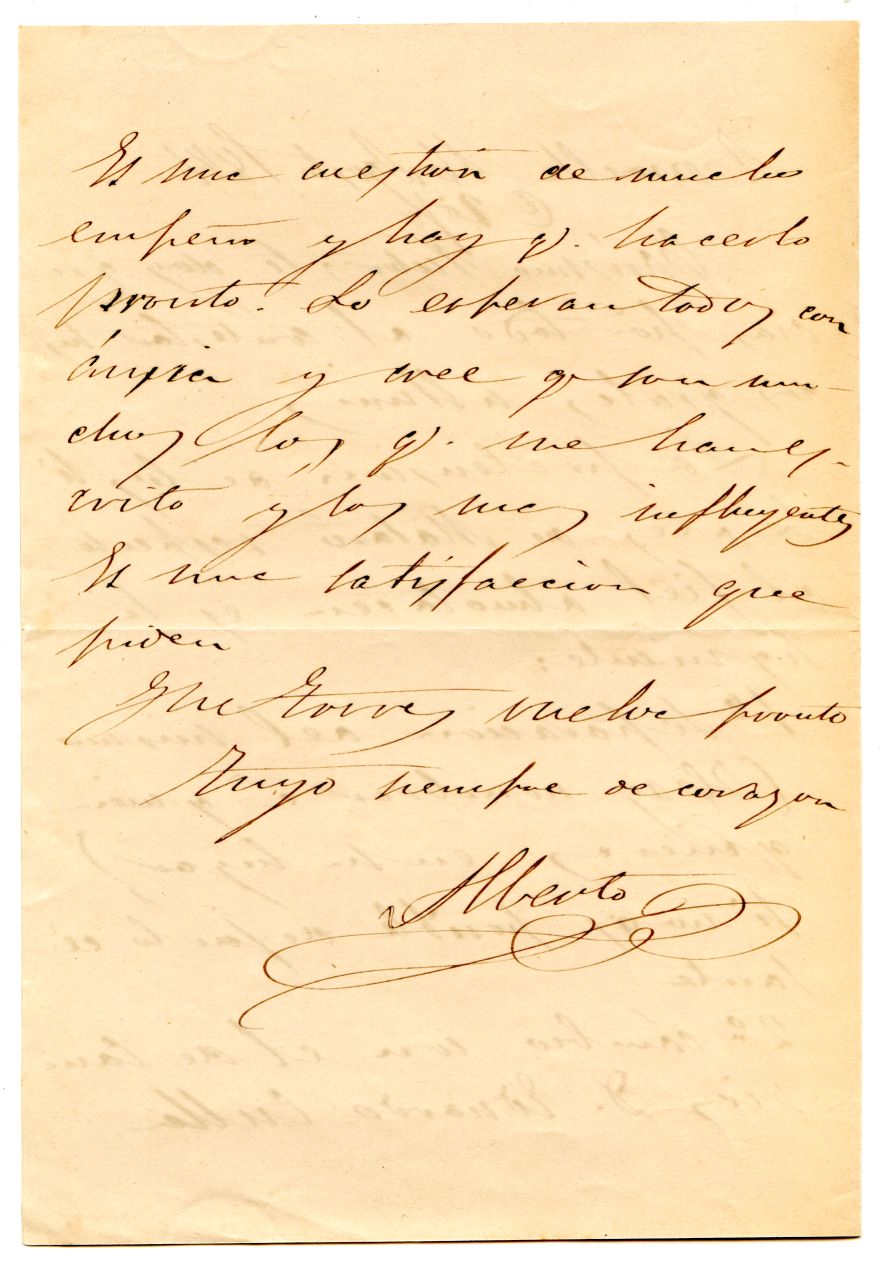 Es una cuestion de mucho
empeño y hay q. hacerlo
pronto. Lo esperan todos con
ánsia y cree q son mu-
chos los q. me han es-
crito y los mas influyentes
Es una satisfaccion que
piden
Torres vuelve pronto
Tuyo siempre de corazon
Alberto